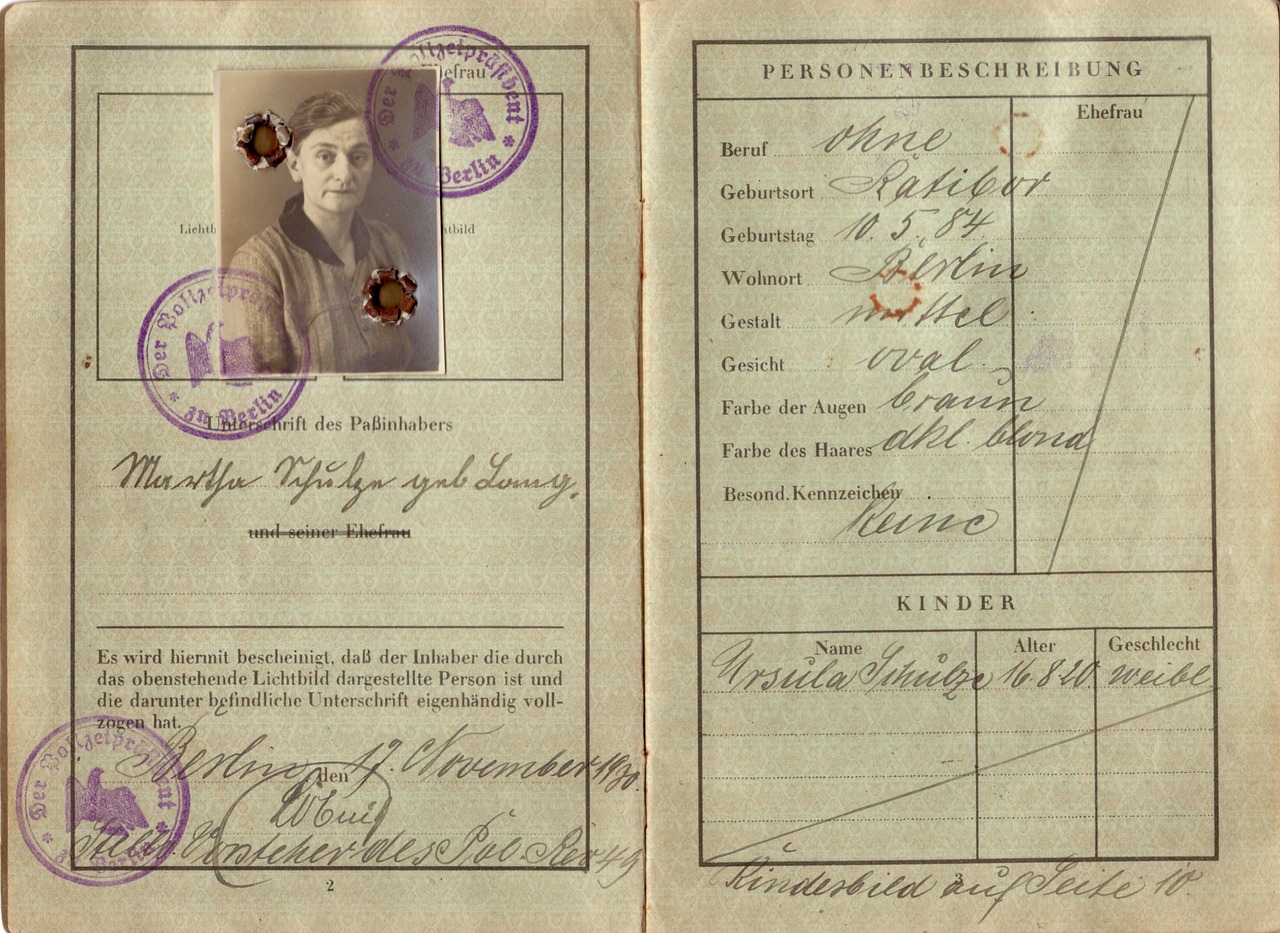 Ehefrau
Der Polizeipräsident
zu Berlin
Lichtb
tbild
Der Polizeipräsident
zu Berlin
Unterschrift des Paßinhabers
Martha Schulze geb Lang.
und seiner Ehefrau
Es wird hiermit bescheinigt, daß der Inhaber die durch
das obenstehende Lichtbild dargestellte Person ist und
die darunter befindliche Unterschrift eigenhändig voll-
zogen hat.
Berlin, den 17. November 1930.
Stellv. Vorsteher des Pol. Rev 49
Der Polizeipräsident
zu Berlin
2
PERSONENBESCHREIBUNG
Ehefrau
Beruf ohne
Geburtsort Ratibor
Geburtstag 10. 5. 84
Wohnort Berlin
Gestalt mittel
Gesicht oval
Farbe der Augen braun
Farbe des Haares dkl. blond
Besond. Kennzeichen
Keine
KINDER
Name Alter Geschlecht
Ursula Schulze 16.8.20. weibl
3
Kindesbild auf Seite 10.